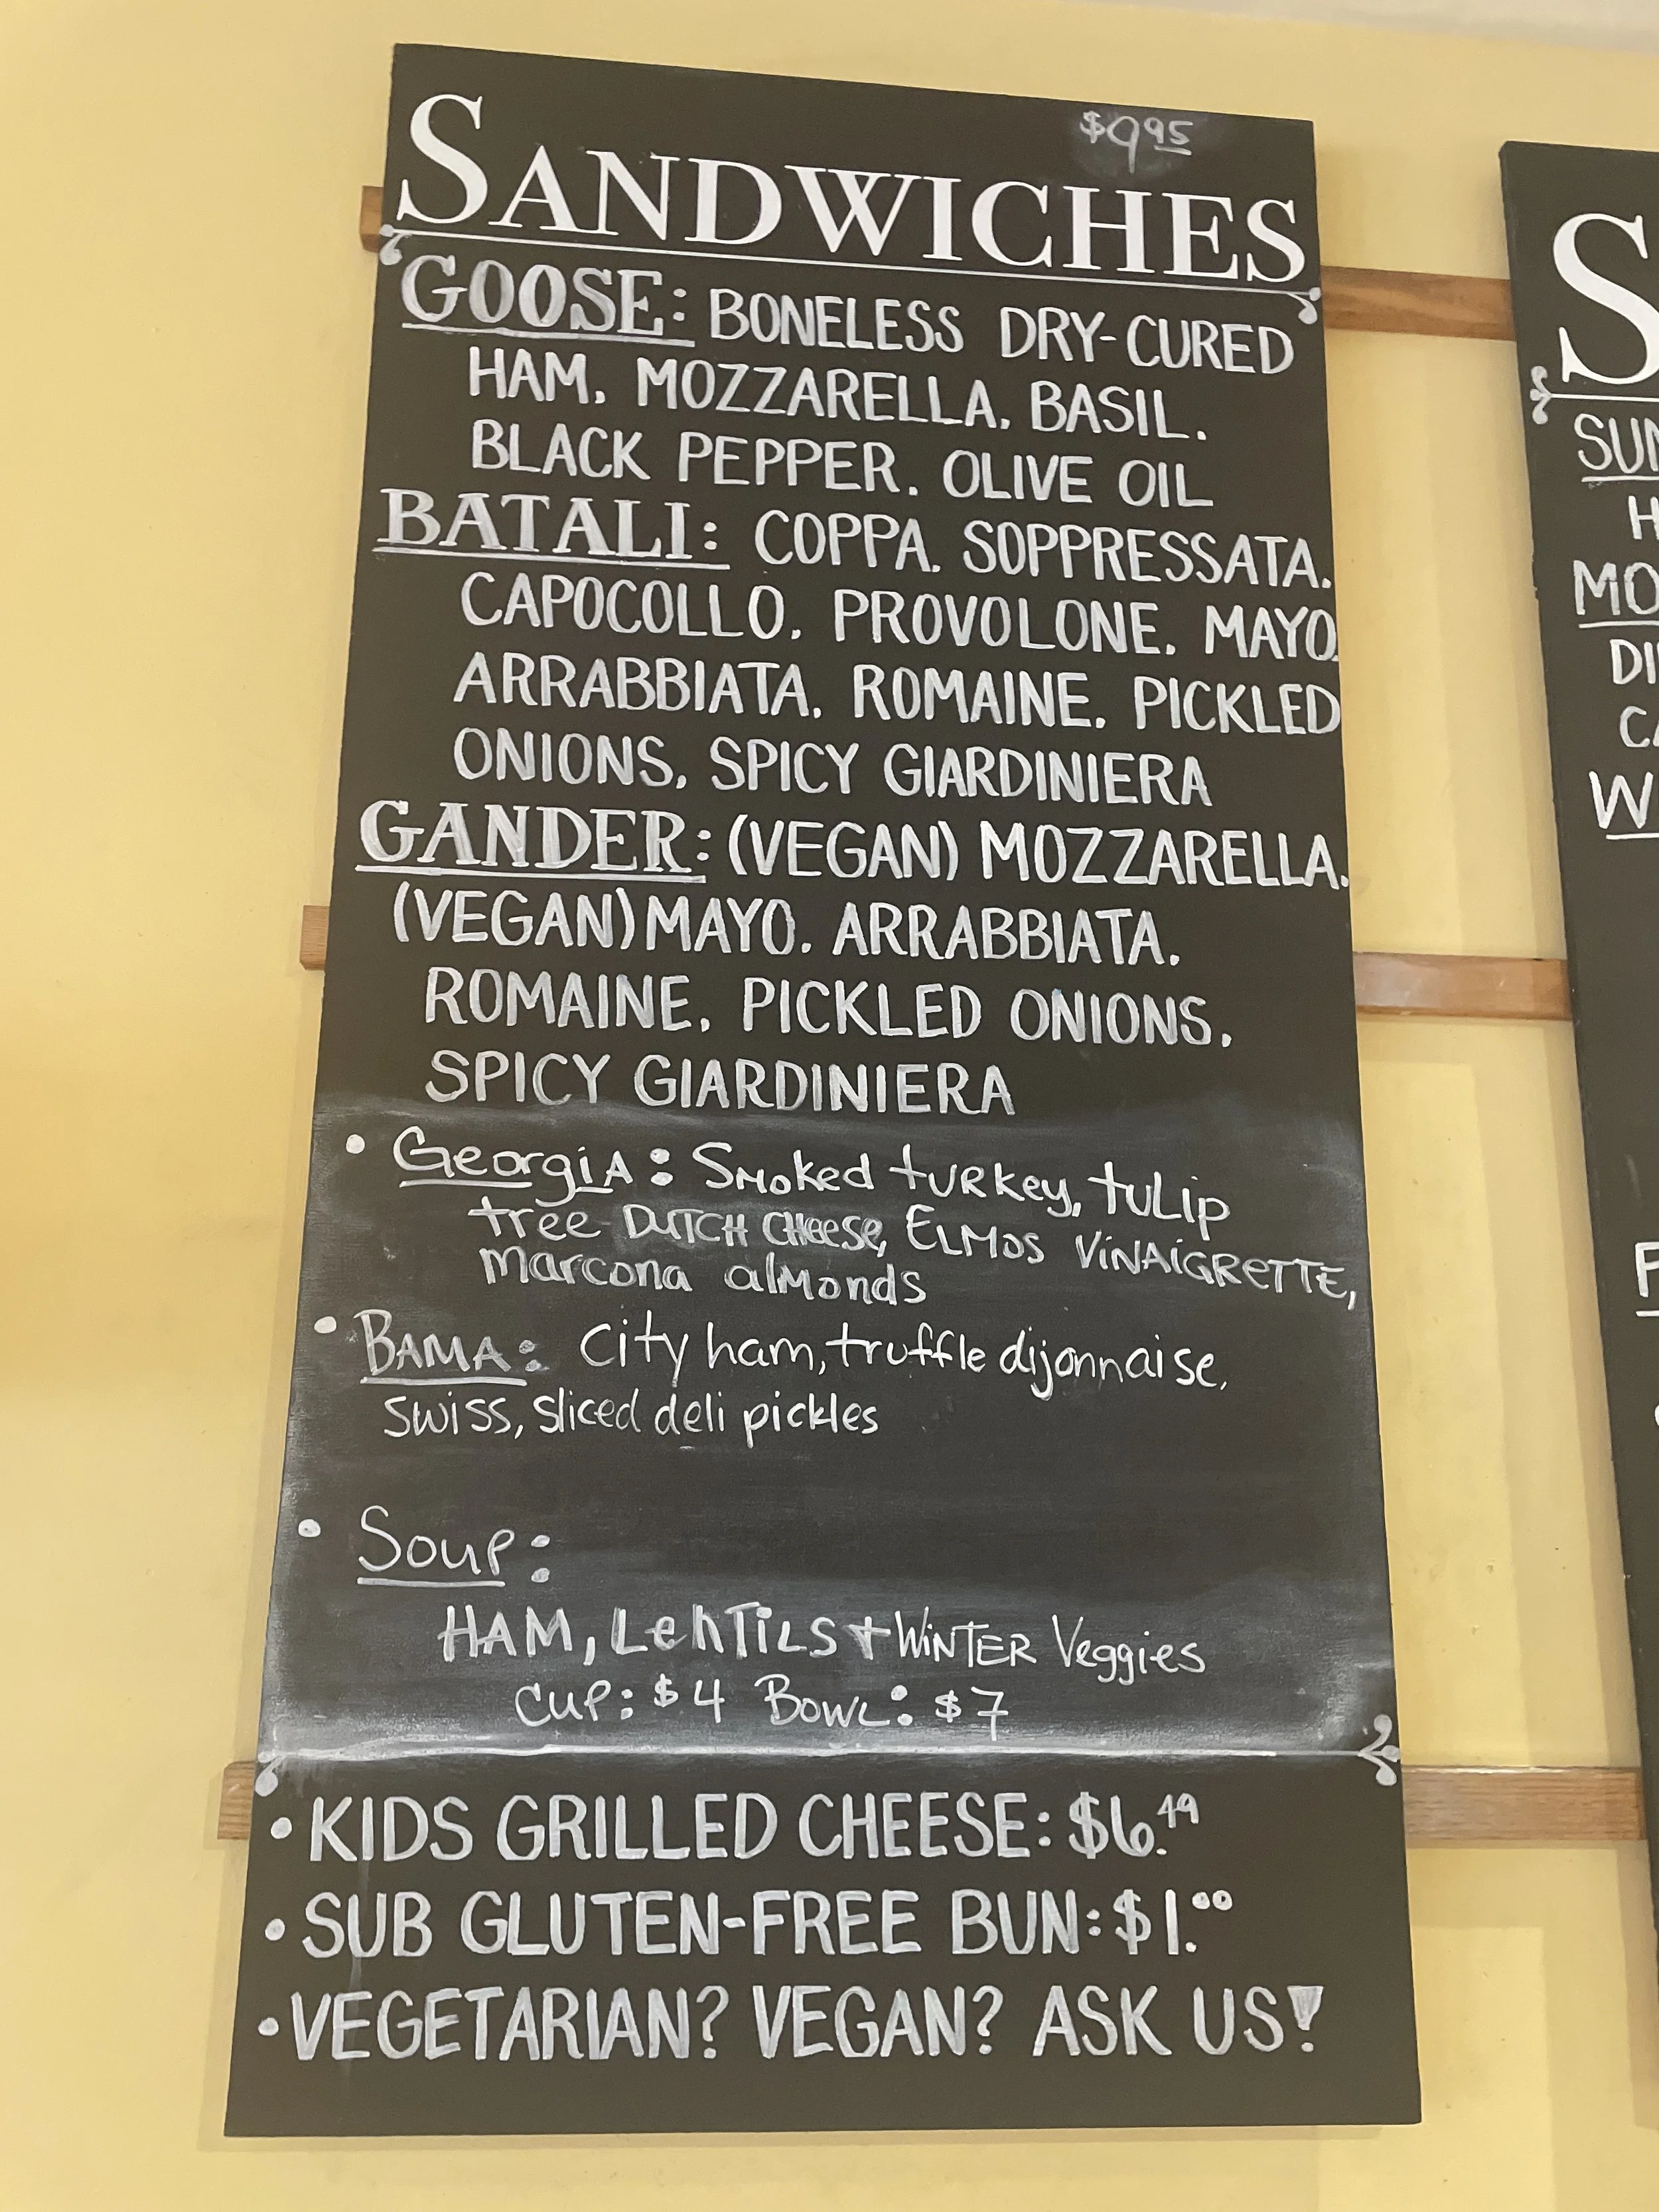 $9.95
SANDWICHES
GOOSE: BONELESS DRY-CURED
HAM, MOZZARELLA, BASIL,
BLACK PEPPER, OLIVE OIL
BATALI: COPPA, SOPPRESSATA,
CAPOCOLLO, PROVOLONE, MAYO,
ARRABBIATA, ROMAINE, PICKLED
ONIONS, SPICY GIARDINIERA
GANDER: (VEGAN) MOZZARELLA,
(VEGAN) MAYO, ARRABBIATA,
ROMAINE, PICKLED ONIONS,
SPICY GIARDINIERA
• Georgia: Smoked turkey, tulip
tree DUTCH CHeese, ELMOS VINAIGRETTE,
marcona almonds
• BAMA: City ham, truffle dijonnaise,
swiss, sliced deli pickles
• Soup:
HAM, LENTILS + WINTER Veggies
Cup: $4 Bowl: $7
• KIDS GRILLED CHEESE: $6.49
• SUB GLUTEN-FREE BUN: $1.00
• VEGETARIAN? VEGAN? ASK US!